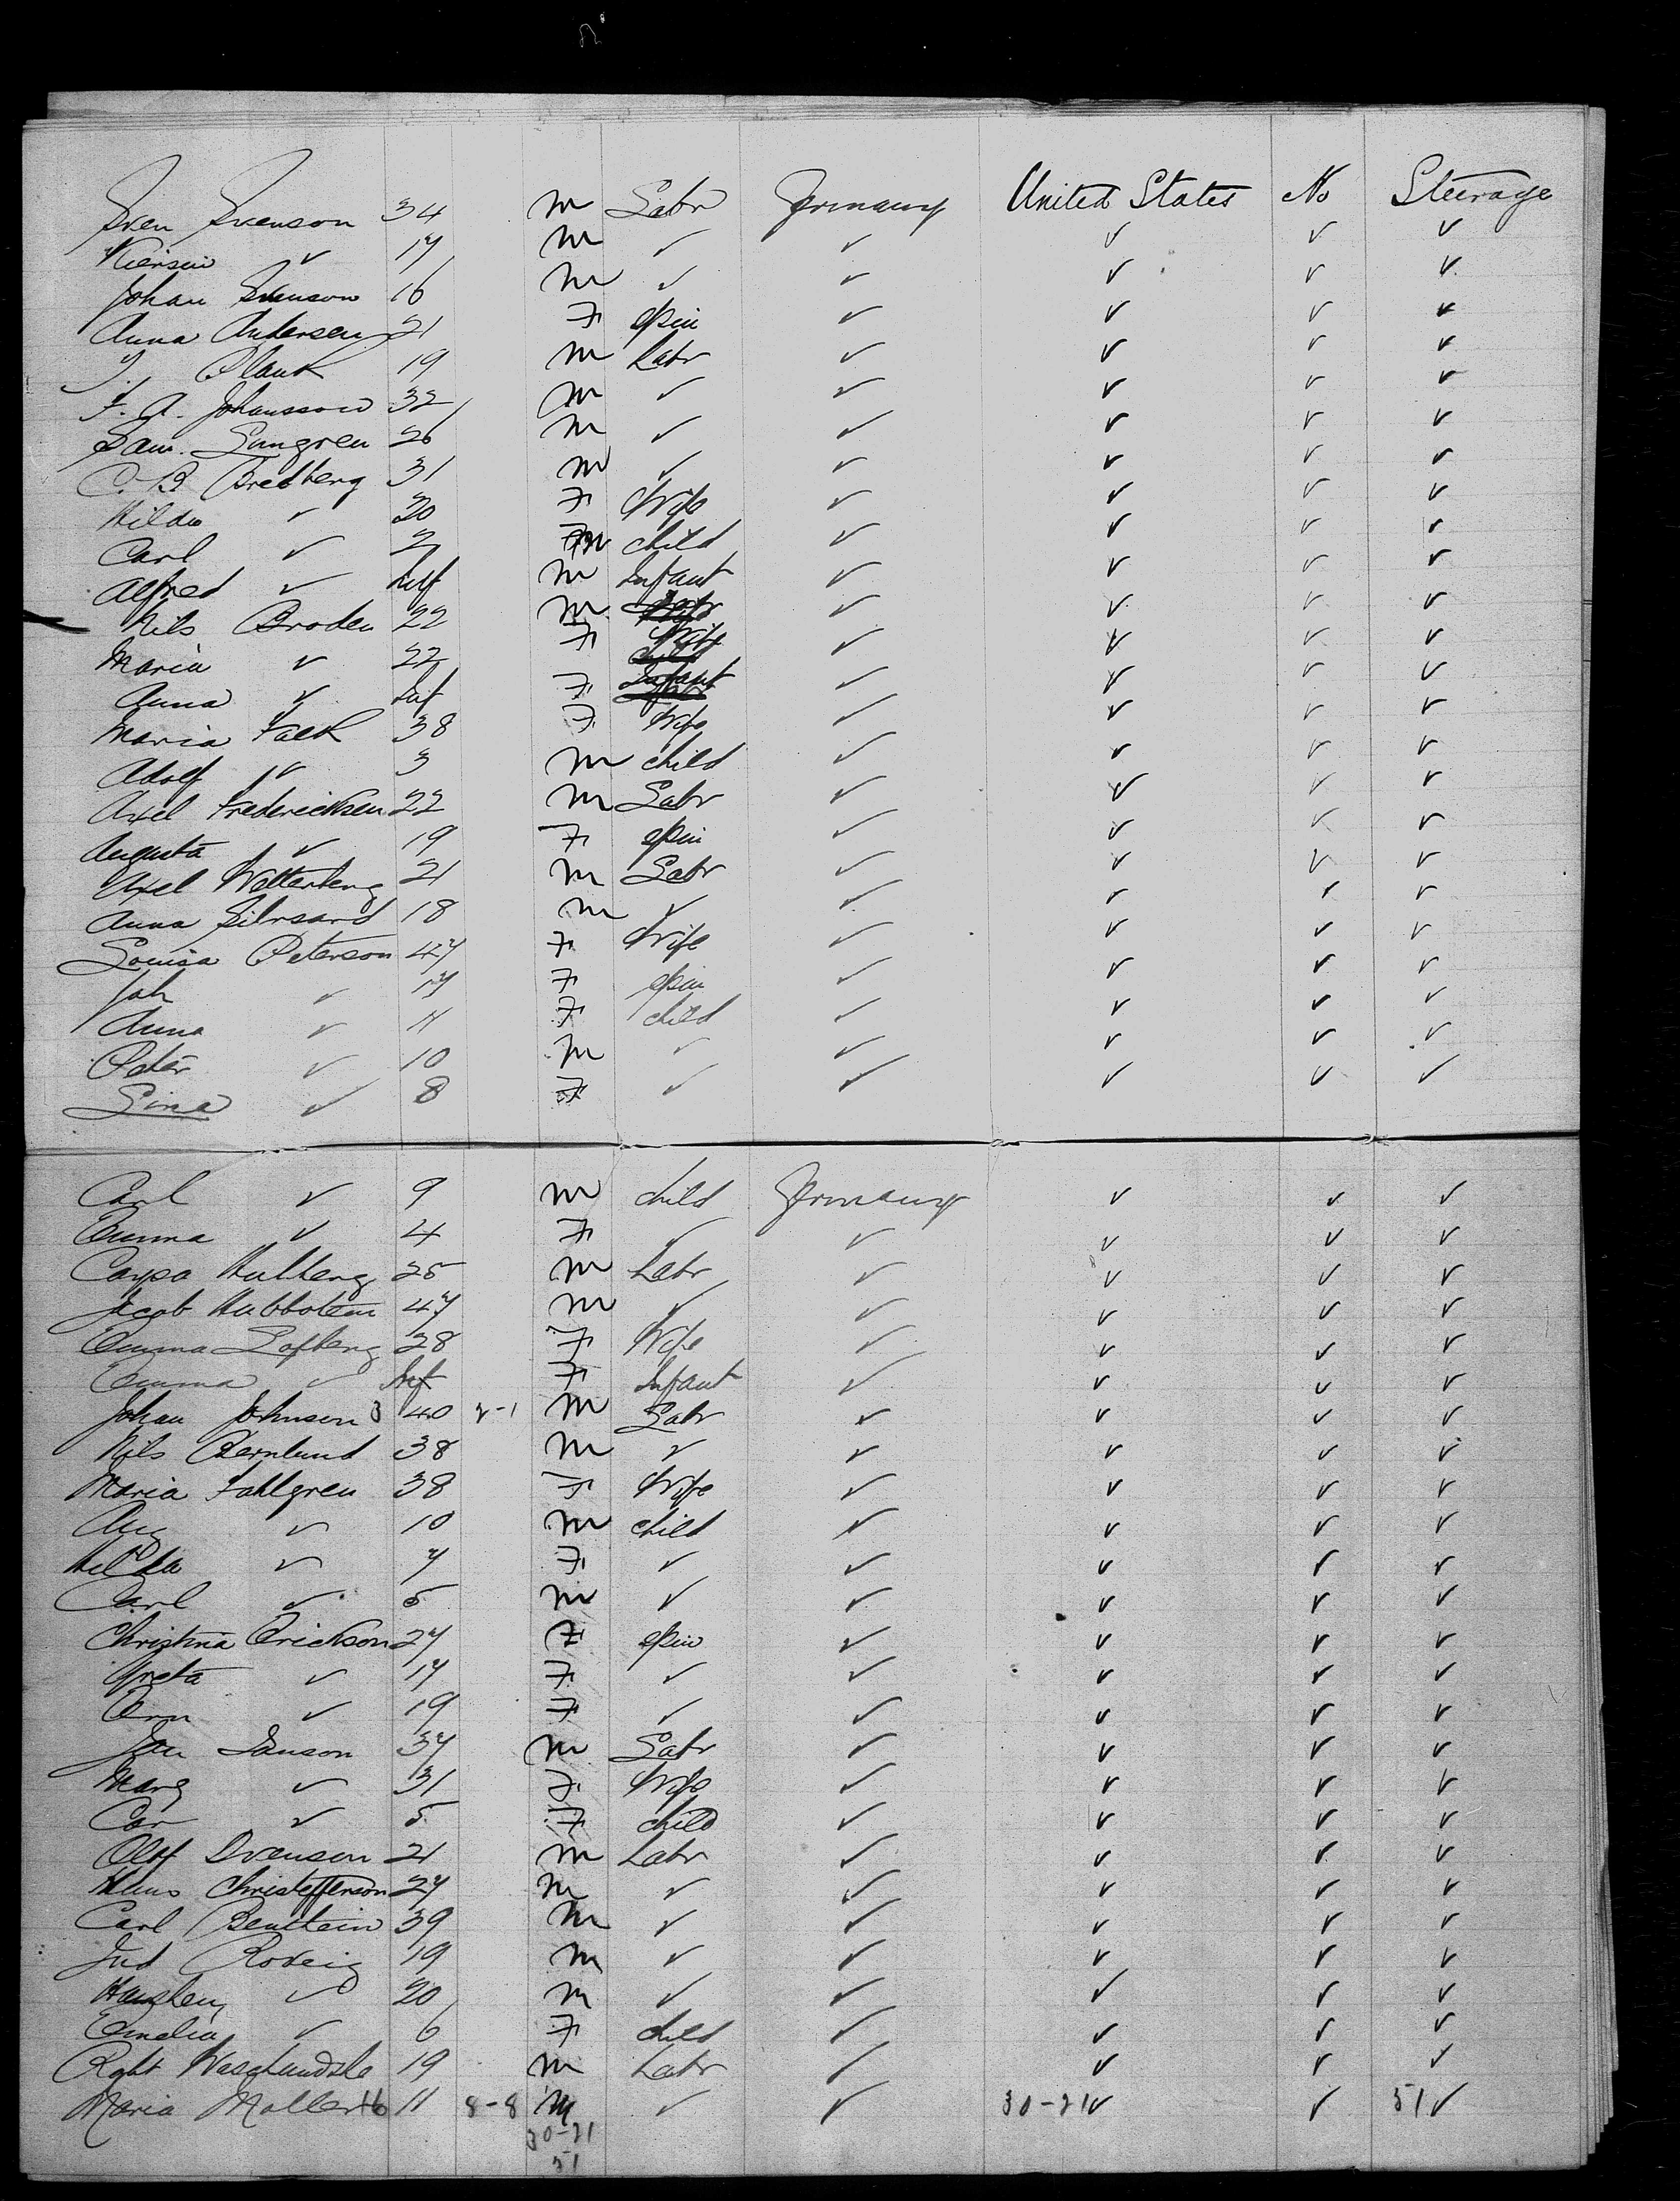 Sven Svenson 34 m Labr Germany United States No Steerage
✓ 17 m ✓ ✓ ✓ ✓ ✓
Johan Svenson 16 m ✓ ✓ ✓ ✓ ✓
Anna Andersen 21 F spin ✓ ✓ ✓ ✓
J. Plank 19 m Labr ✓ ✓ ✓ ✓
F. A. Johansson 32 m ✓ ✓ ✓ ✓ ✓
Sam. Sungren 26 m ✓ ✓ ✓ ✓ ✓
C. B Bredberg 31 m ✓ ✓ ✓ ✓ ✓
Hilda ✓ 20 F Wife ✓ ✓ ✓ ✓
Carl ✓ 2 m child ✓ ✓ ✓ ✓
Alfred ✓ Inf m Infant ✓ ✓ ✓ ✓
Nils Broden 22 m Labr ✓ ✓ ✓ ✓
Maria ✓ 22 F Wife ✓ ✓ ✓ ✓
Anna ✓ Inf F Infant ✓ ✓ ✓ ✓
Maria Falk 38 F Wife ✓ ✓ ✓ ✓
Adolf ✓ 3 m child ✓ ✓ ✓ ✓
Axel Fredericksen 22 m Labr ✓ ✓ ✓ ✓
Augusta ✓ 19 F spin ✓ ✓ ✓ ✓
Axel Wetterberg 21 m Labr ✓ ✓ ✓ ✓
Anna 18 m ✓ ✓ ✓ ✓ ✓
Louisa Peterson 47 F Wife ✓ ✓ ✓ ✓
Joh ✓ 17 F spin ✓ ✓ ✓ ✓
Anna ✓ 11 F child ✓ ✓ ✓ ✓
Peter ✓ 10 m ✓ ✓ ✓ ✓ ✓
Sina ✓ 8 F ✓ ✓ ✓ ✓ ✓
Carl ✓ 9 m child Germany ✓ ✓ ✓
Emma ✓ 4 F ✓ ✓ ✓ ✓ ✓
Hultberg 25 m Labr ✓ ✓ ✓ ✓
Jacob 47 m ✓ ✓ ✓ ✓ ✓
Emma Lofberg 28 F Wife ✓ ✓ ✓ ✓
Emma ✓ Inf F Infant ✓ ✓ ✓ ✓
Johan Johnson 3 40 2-1 m Labr ✓ ✓ ✓ ✓
Nils Bernlund 38 m ✓ ✓ ✓ ✓ ✓
Maria Fahlgren 38 F Wife ✓ ✓ ✓ ✓
Aug ✓ 10 m child ✓ ✓ ✓ ✓
Hilda ✓ 7 F ✓ ✓ ✓ ✓ ✓
Carl ✓ 5 m ✓ ✓ ✓ ✓ ✓
Christina Erickson 27 F spin ✓ ✓ ✓ ✓
Greta ✓ 17 F ✓ ✓ ✓ ✓ ✓
✓ 19 F ✓ ✓ ✓ ✓ ✓
Jan Janson 37 m Labr ✓ ✓ ✓ ✓
Marg ✓ 31 F Wife ✓ ✓ ✓ ✓
Car ✓ 5 F child ✓ ✓ ✓ ✓
Olof Svenson 21 m Labr ✓ ✓ ✓ ✓
Christefferson 27 m ✓ ✓ ✓ ✓ ✓
Carl 39 m ✓ ✓ ✓ ✓ ✓
19 m ✓ ✓ ✓ ✓ ✓
✓ 20 m ✓ ✓ ✓ ✓ ✓
Emelia ✓ 6 F child ✓ ✓ ✓ ✓
Robt 19 m Labr ✓ ✓ ✓ ✓
Maria Moller 16 11 8-8 m ✓ ✓ 30-21 ✓ ✓ 51 ✓
30-21
51